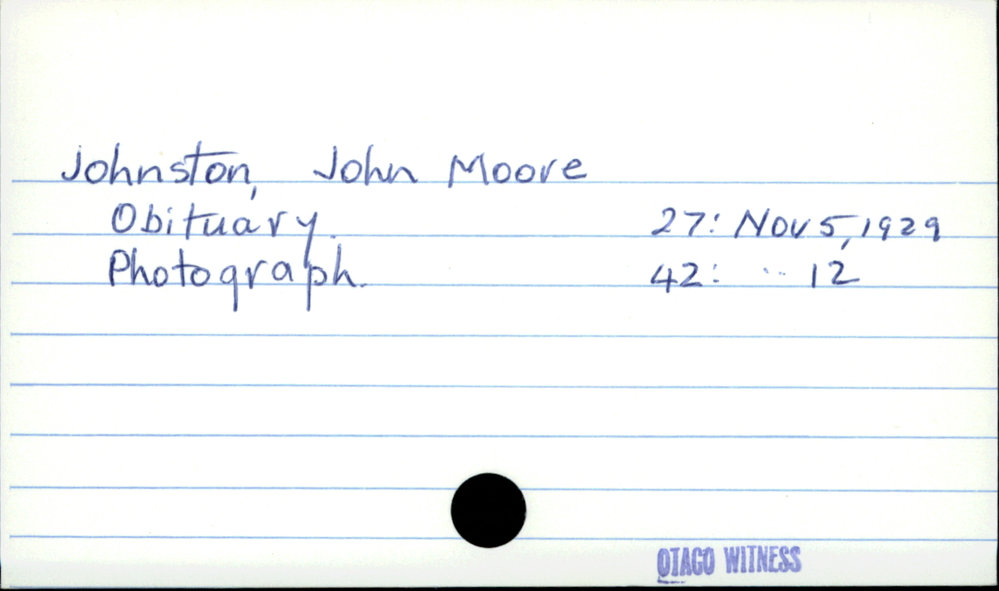 Johnston, John Moore
Obituary. 27: Nov 5, 1929
Photograph. 42: " 12
OTAGO WITNESS